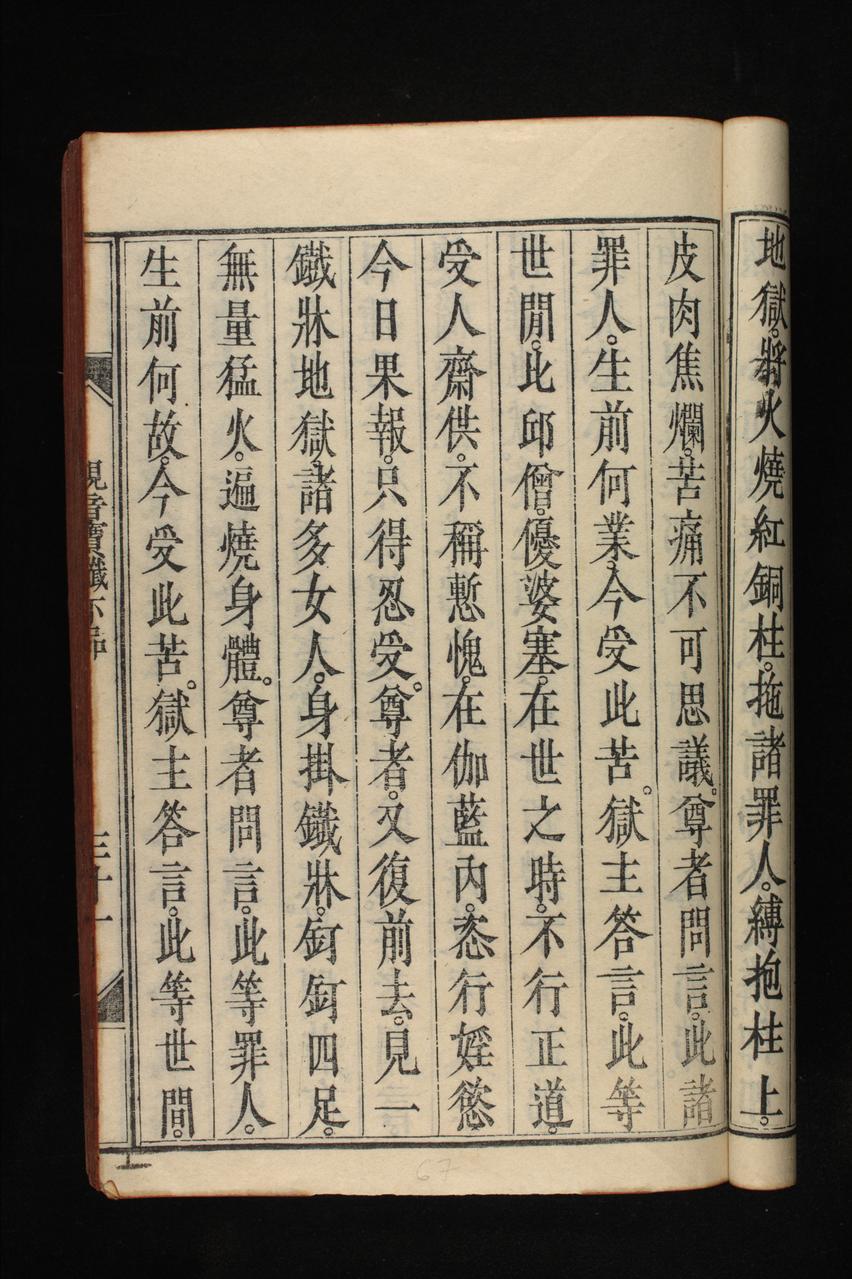 地獄。將火燒紅銅柱。拖諸罪人。縛抱柱上。
皮肉焦爛。苦痛不可思議。尊者問言。此諸
罪人。生前何業。今受此苦。獄主答言。此等
世閒。比邱僧。優婆塞。在世之時。不行正道。
受人齋供。不稱慙愧。在伽藍內。恣行婬慾
今日果報。只得忍受。尊者。又復前去。見一
鐵牀地獄。諸多女人。身掛鐵牀。釘釘四足。
無量猛火。遍燒身體。尊者問言。此等罪人。
生前何故。今受此苦。獄主答言。此等世間。
觀音寶懺下品
三十一
67